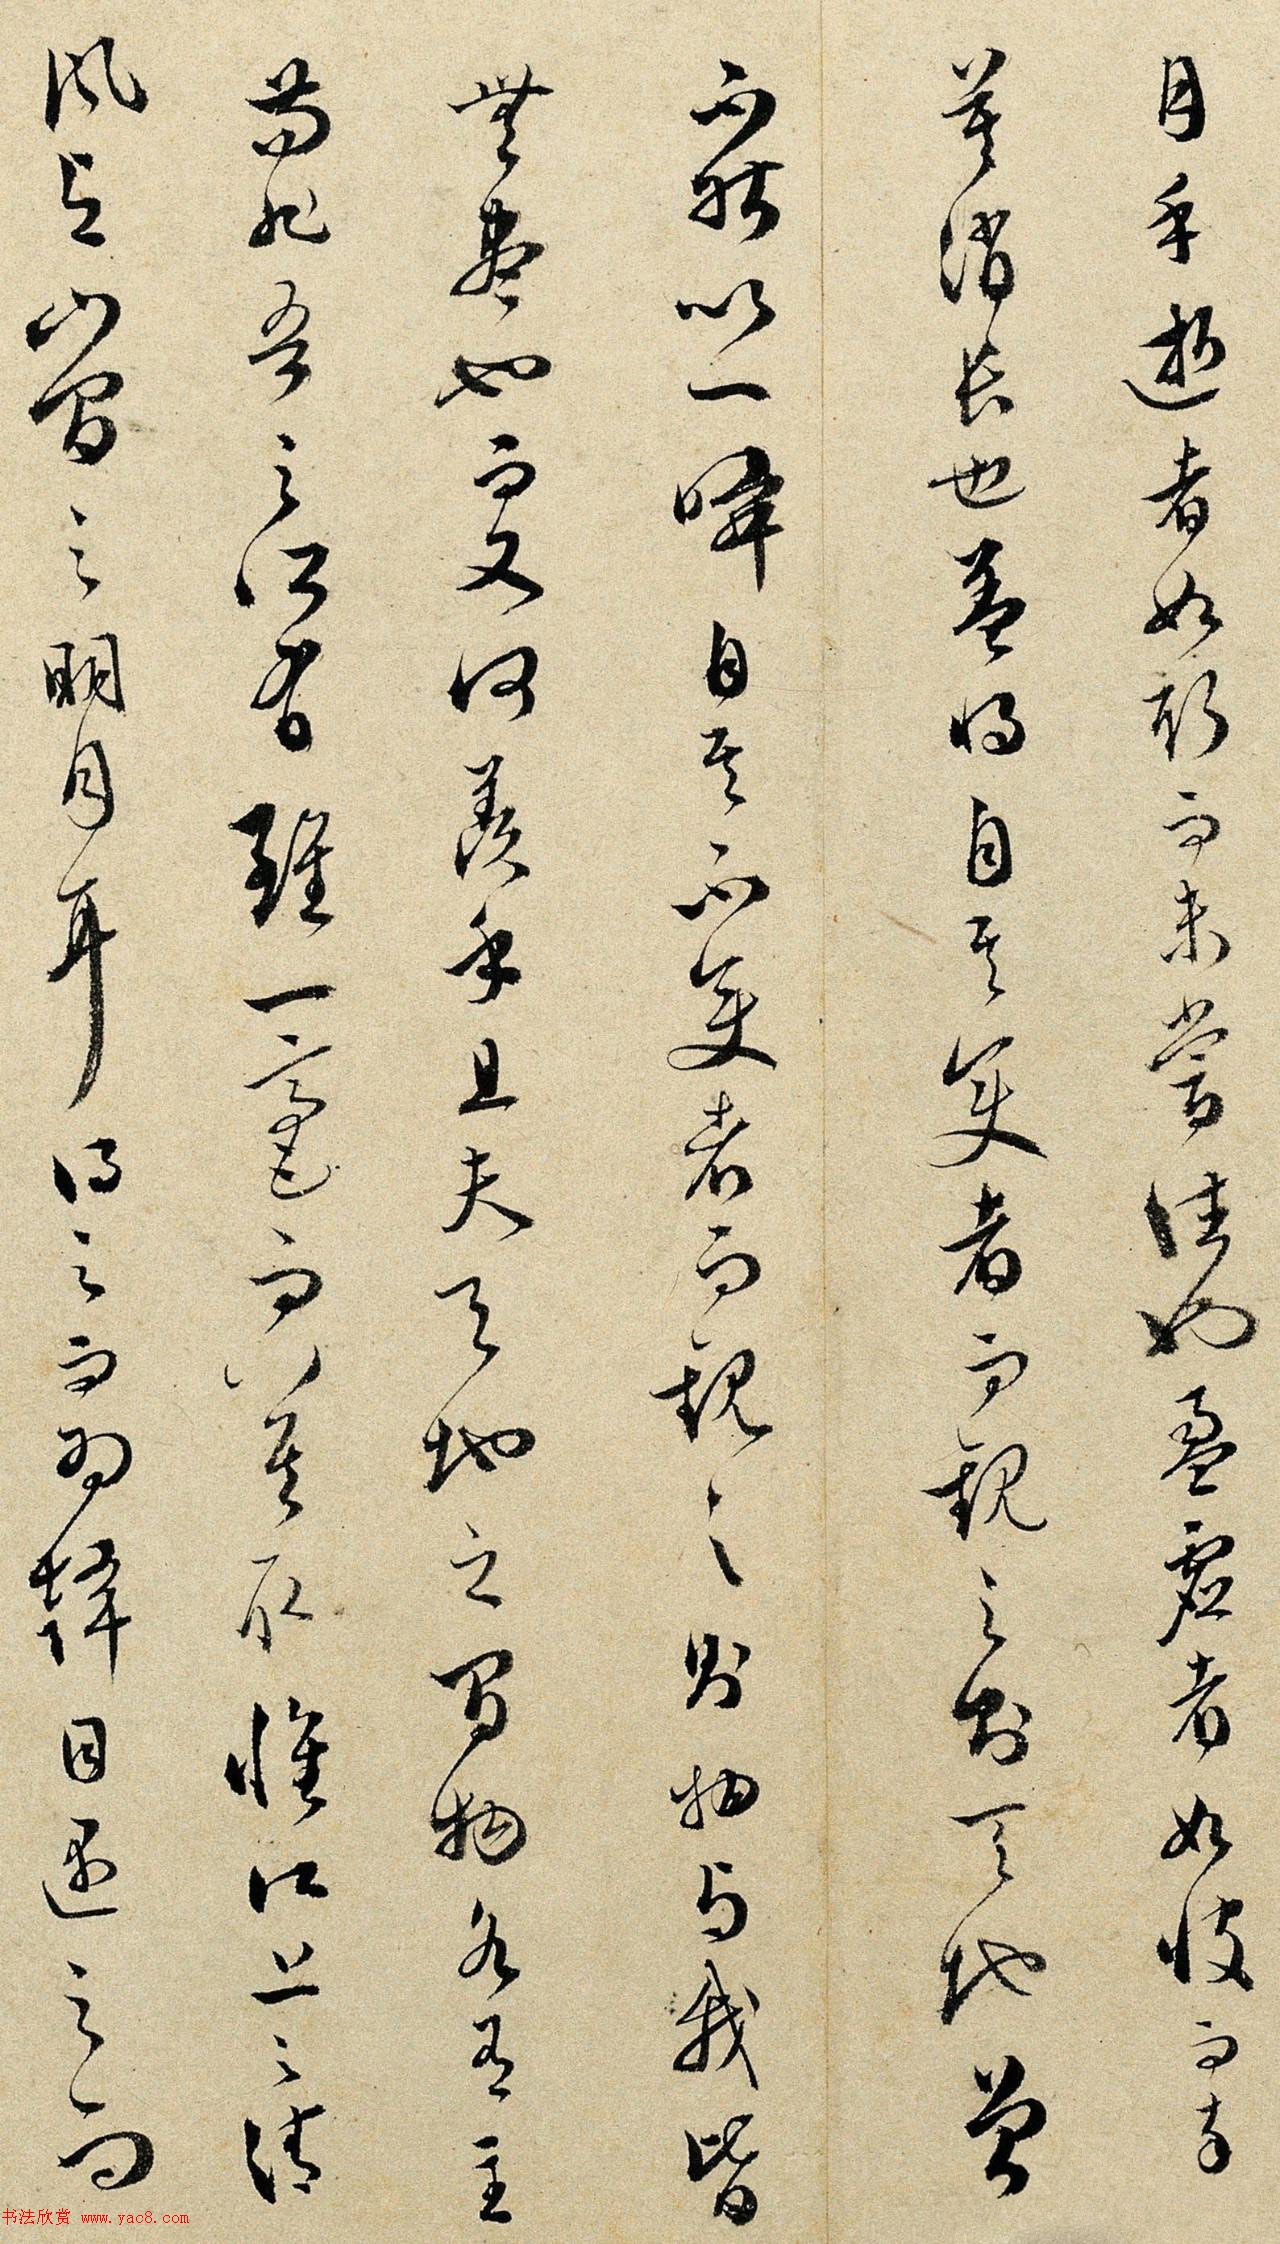 月乎逝者如斯而未嘗往也盈虛者如彼而卒
莫消長也蓋將自其變者而觀之則天地曾
不能以一瞬自其不變者而觀之則物與我皆
無盡也而又何羨乎且夫天地之間物各有主
苟非吾之所有雖一毫而莫取惟江上之清
風與山間之明月耳得之而為聲目遇之而
书法欣赏 www.yac8.com